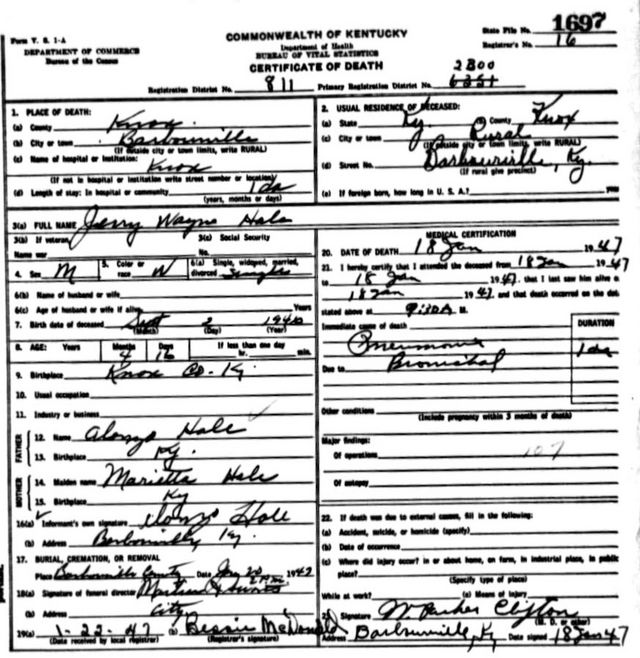 1697
Form V. S. 1-A
COMMONWEALTH OF KENTUCKY
State File No.
DEPARTMENT OF COMMERCE
Bureau of the Census
Department of Health
BUREAU OF VITAL STATISTICS
Registrar's No. 16
CERTIFICATE OF DEATH
2300
Registration District No. 811 Primary Registration District No. 6351
1. PLACE OF DEATH:
(a) County Knox
(b) City or town Barbourville
(If outside city or town limits, write RURAL)
(c) Name of hospital or institution:
Knox
(If not in hospital or institution write street number or location)
(d) Length of stay: In hospital or community 1 da
(years, months or days)
2. USUAL RESIDENCE OF DECEASED:
(a) State Ky County Knox
(c) City or town Rural
(If outside city or town limits, write RURAL)
(d) Street No. Barbourville, Ky.
(If rural give precinct)
(e) If foreign born, how long in U. S. A.? years
3(a) FULL NAME Jerry Wayne Hale
3(b) If veteran, Name war
3(c) Social Security No.
4. Sex M 5. Color or race W 6(a) Single, widowed, married, divorced Single
6(b) Name of husband or wife
6(c) Age of husband or wife if alive Years
7. Birth date of deceased Sept 2 1946
(Month) (Day) (Year)
8. AGE: Years Months 4 Days 16 If less than one day hr. min.
9. Birthplace Knox Co. Ky.
10. Usual occupation
11. Industry or business
FATHER
12. Name Alonzo Hale
13. Birthplace Ky.
MOTHER
14. Maiden name Marietta Hale
15. Birthplace Ky
16(a) Informant's own signature Alonzo Hale
(b) Address Barbourville Ky.
17. BURIAL, CREMATION, OR REMOVAL
Place Barbourville Date Jan 20 1947
18(a) Signature of funeral director
(b) Address City
19(a) 1-22-47 (b) Bessie McDonald
(Date received by local registrar) (Registrar's signature)
MEDICAL CERTIFICATION
20. DATE OF DEATH 18 Jan 1947
21. I hereby certify that I attended the deceased from 18 Jan 1947
to 18 Jan 1947, that I last saw him alive on
18 Jan 1947, and that death occurred on the date
stated above at 9:30 A M.
Immediate cause of death DURATION
Pneumonia 1 da
Due to Bronchial
Other conditions
(Include pregnancy within 3 months of death)
Major findings:
107
Of operations
Of autopsy
22. If death was due to external causes, fill in the following:
(a) Accident, suicide, or homicide (specify)
(b) Date of occurrence
(c) Where did injury occur? in or about home, on farm, in industrial place, in public
place?
(Specify type of place)
While at work? (e) Means of injury
23. Signature W. Parker Clifton
(M. D. or other)
Address Barbourville, Ky Date signed 18 Jan 47